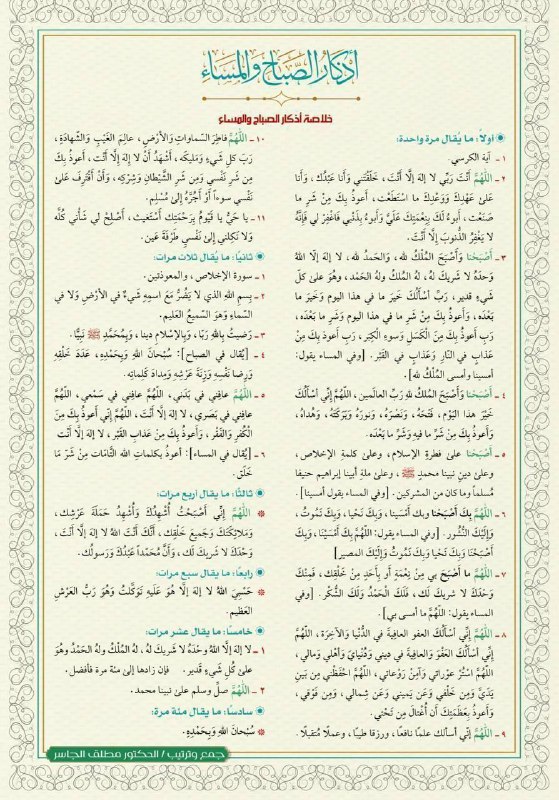 أذكار الصباح والمساء
خلاصة أذكار الصباح والمساء
أولاً: ما يُقال مرة واحدة:
١ - آية الكرسي
٢ - اللَّهُمَّ أَنْتَ رَبِّي لا إلهَ إلَّا أَنْتَ، خَلَقْتَني وَأنا عَبْدُكَ، وَأنا
عَلىٰ عَهْدِكَ وَوَعْدِكَ ما اسْتَطَعْت، أعوذُ بِكَ مِنْ شَرِ ما
صَنَعْت، أبوءُ لَكَ بِنِعْمَتِكَ عَلَيَّ وَأبوءُ بِذَنْبي فَاغْفِرْ لي فَإِنَّهُ
لا يَغْفِرُ الذُّنوبَ إلَّا أَنْتَ.
٣ - أَصْبَحْنا وَأَصْبَحَ المُلْكُ لله، وَالحَمدُ لله، لا إلهَ إلَّا اللهُ
وَحدَهُ لا شَريكَ لهُ، لهُ المُلكُ ولهُ الحَمْد، وهُوَ عَلىٰ كلِّ
شَيءٍ قدير، رَبِّ أسْألُكَ خَيرَ ما في هذا اليوم وَخَيرَ ما
بَعْدَه، وَأَعوذُ بِكَ مِنْ شَرِ ما في هذا اليوم وَشَرِ ما بَعْدَه،
رَبِّ أَعوذُ بِكَ مِنَ الْكَسَلِ وَسوءِ الْكِبَر، رَبِّ أَعوذُ بِكَ مِنْ
عَذابٍ في النّارِ وَعَذابٍ في القَبْر. [وفي المساء يقول:
أمسينا وأمسى المُلْكُ لله].
٤ - أَصْبَحْنا وَأَصْبَحَ المُلكُ للهِ رَبِّ العالَمين، اللهُمَّ إنِّي أسْأَلُكَ
خَيْرَ هذا اليَوْم، فَتْحَهُ، وَنَصْرَهُ، وَنورَهُ وَبَرَكَتَهُ، وَهُداهُ،
وَأَعوذُ بِكَ مِنْ شَرِّ ما فيهِ وَشَرِّ ما بَعْدَه.
٥ - أَصْبَحْنا علىٰ فطرةِ الإسلام، وعلىٰ كلمةِ الإخلاص،
وعلىٰ دينِ نبينا محمدٍ ﷺ ، وعلىٰ ملةِ أبينا إبراهيم حنيفا
مُسلماً وما كان من المشركين. [وفي المساء يقول أمسينا].
٦ - اللَّهُمَّ بِكَ أَصْبَحْنا وبك أمْسَينا، وبكَ نَحْيا، وَبِكَ نَمُوتُ،
وَإِلَيْكَ النُّشُور. [وفي المساء يقول: اللَّهُمَّ بِكَ أَمْسَيْنَا، وَبِكَ
أَصْبَحْنَا وَبِكَ نَحيا وَبِكَ نَمُوتُ وَإِلَيْكَ المصير]
٧ - اللَّهُمَّ ما أَصْبَحَ بي مِنْ نِعْمَةٍ أو بِأَحَدٍ مِنْ خَلْقِك، فَمِنْكَ
وَحْدَكَ لا شريكَ لَك، فَلَكَ الْحَمْدُ وَلَكَ الشُّكْر. [وفي
المساء يقول: اللَّهُمَّ ما أمسى بي].
٨ - اللَّهُمَّ إنِّي أسألُكَ العفو العافِيةَ في الدُّنْيا وَالآخِرَة، اللَّهُمَّ
إنِّي أسألُكَ العَفْوَ وَالعافِيةَ في ديني وَدُنْيايَ وَأهْلي ومالي،
اللَّهُمَّ اسْتُرْ عَوْراتي وَآمِنْ رَوْعاتي، اللَّهُمَّ احْفَظْني مِن بَينِ
يَدَيَّ وَمِن خَلْفي وَعَن يَميني وَعَن شِمالي، وَمِن فَوْقي،
وَأَعوذُ بِعَظَمَتِكَ أَن أُغْتالَ مِن تَحْتي.
٩ - اللَّهُمَّ إني أسألك علمًا نافعًا، ورزقا طيبًا، وعملًا متقبلًا.
١٠ - اللَّهُمَّ فاطِرَ السّماواتِ وَالأرْض، عالِمَ الغَيْبِ وَالشَّهادَة،
رَبَّ كلِ شَيءٍ وَمَليكَه، أَشْهَدُ أَنْ لا إِلهَ إلَّا أَنْت، أَعوذُ بِكَ
مِن شَرِ نَفْسي وَمِن شَرِ الشَّيْطانِ وَشِرْكِه، وَأَنْ أَقْتَرِفَ عَلىٰ
نَفْسي سوءاً أَوْ أَجُرَّهُ إلىٰ مُسْلِم.
١١ - يا حَيُّ يا قَيّومُ بِرَحْمَتِكَ أَسْتَغيث، أَصْلِحْ لي شَأْني كُلَّه
وَلا تَكِلْني إلىٰ نَفْسي طَرْفَةَ عَين.
ثانيًا: ما يُقال ثلاث مرات:
١ - سورة الإخلاص، والمعوذتين.
٢ - بِسمِ اللهِ الذي لا يَضُرُّ مَعَ اسمِهِ شَيءٌ في الأرْضِ وَلا في
السّماءِ وَهوَ السّميعُ العَليم.
٣ - رَضيتُ باللهِ رَبًا، وَبِالإسْلامِ دينا، وبِمُحَمَّدٍ ﷺ نَبيًّا.
٤ - [يُقال في الصباح]: سُبْحانَ اللهِ وَبِحَمْدِهِ، عَدَدَ خَلْقِهِ
وَرِضا نَفْسِهِ وَزِنَةَ عَرْشِهِ وَمِدادَ كَلِماتِه.
٥ - اللَّهُمَّ عافِني في بَدَني، اللَّهُمَّ عافِني في سَمْعي، اللَّهُمَّ
عافِني في بَصَري، لا إلهَ إلَّا أَنْتَ، اللَّهُمَّ إنِّي أَعوذُ بِكَ مِنَ
الكُفرِ وَالفَقْر، وَأَعوذُ بِكَ مِنْ عَذابِ القَبْر، لا إلهَ إلَّا أَنْت
٦ - [يُقال في المساء]: أعوذُ بكلماتِ الله التَّامّات من شَرّ مَا
خَلَقَ.
ثالثًا: ما يقال أربع مرات:
اللَّهُمَّ إِنِّي أَصْبَحْتُ أُشْهِدُكَ وَأُشْهِدُ حَمَلَةَ عَرْشِك،
وَمَلائِكَتَكَ وَجَميعَ خَلْقِك، أَنَّكَ أَنْتَ اللهُ لا إلهَ إلَّا أَنْتَ،
وَحْدَكَ لا شَريكَ لَك، وَأَنَّ مُحَمّداً عَبْدُكَ وَرَسولُك.
رابعًا: ما يقال سبع مرات:
حَسْبِيَ اللهُ لا إلهَ إلَّا هُوَ عَلَيهِ تَوَكَّلتُ وَهُوَ رَبُّ العَرْشِ
العَظيم.
خامسًا: ما يقال عشر مرات:
١ - لا إلهَ إلَّا اللهُ وحْدَهُ لا شَريكَ لهُ، لهُ المُلْكُ ولهُ الحَمْدُ وهُوَ
عَلىٰ كُلِّ شَيءٍ قَدير. فإن زادها إلىٰ مئة مرة فأفضل.
٢ - اللَّهُمَّ صلِّ وسلم علىٰ نبينا محمد.
سادسًا: ما يقال مئة مرة:
سُبْحانَ اللهِ وَبِحَمْدِهِ.
جمع وترتيب / الدكتور مطلق الجاسر